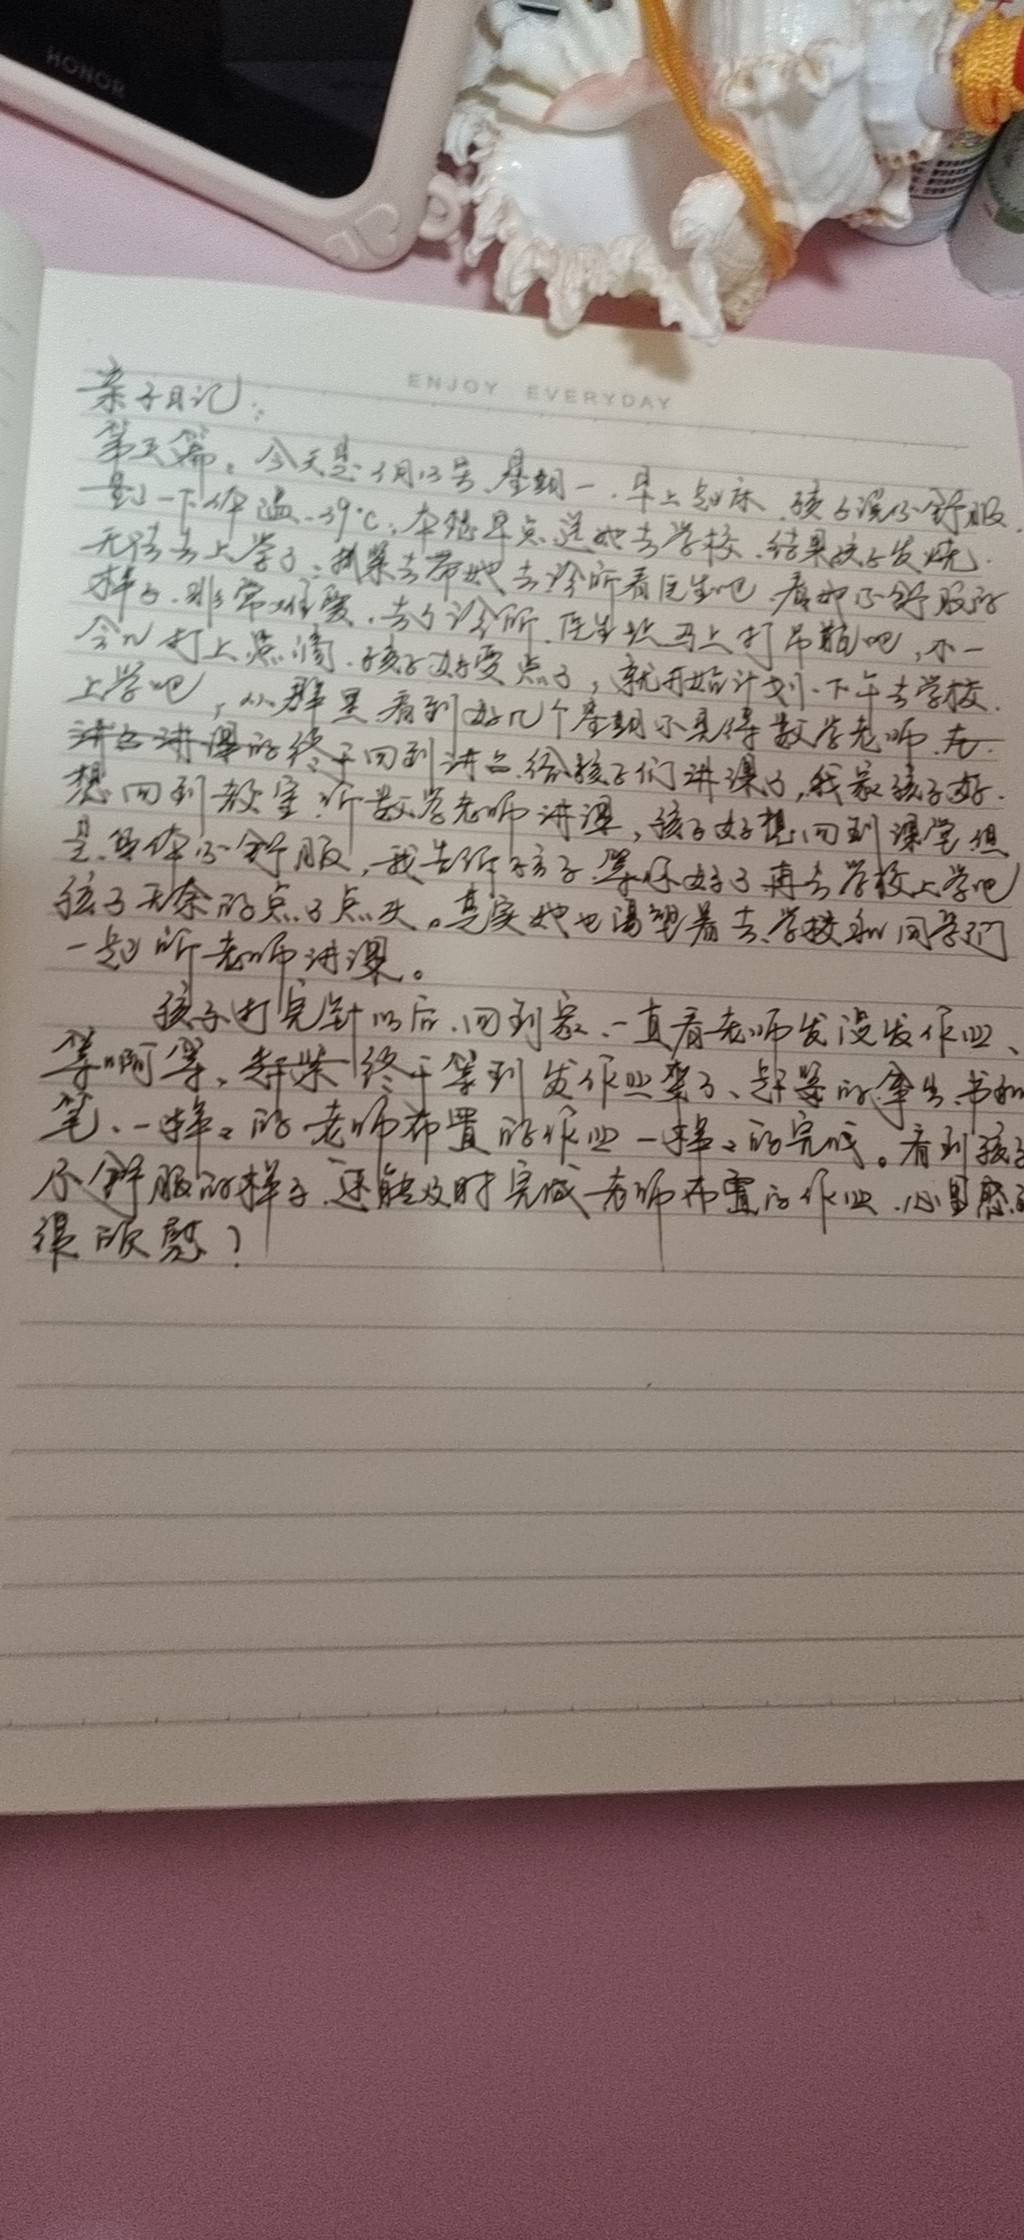 HONOR
ENJOY EVERYDAY
亲子日记:
第天篇。今天是 月13号 星期一.早上起床.孩子说不舒服.
量了一下体温.39℃,本想早点送她去学校.结果孩子发烧.
无法去上学了.抓紧去带她去诊所看医生吧 看她不舒服的
样子.非常难受.去了诊所.医生说马上打吊瓶吧,不一
会儿打上点滴.孩子好受点了,就开始计划.下午去学校.
上学吧,从群里看到好几个星期不见得数学老师.
终于回到讲台.给孩子们讲课了,我家孩子好.
想回到教室.听数学老师讲课,孩子好想回到课堂但
是.身体不舒服,我告诉孩子.等你好了再去学校上学吧
孩子无余的点了点头。其实她也渴望着去学校和同学们
一起听老师讲课。
孩子打完针以后.回到家.一直看老师发没发作业、
等啊等,终于等到发作业了、赶紧的拿出书和
笔、一样样的老师布置的作业一样样的完成。看到孩子
不舒服的样子.还能及时完成老师布置的作业.心里感到
很欣慰